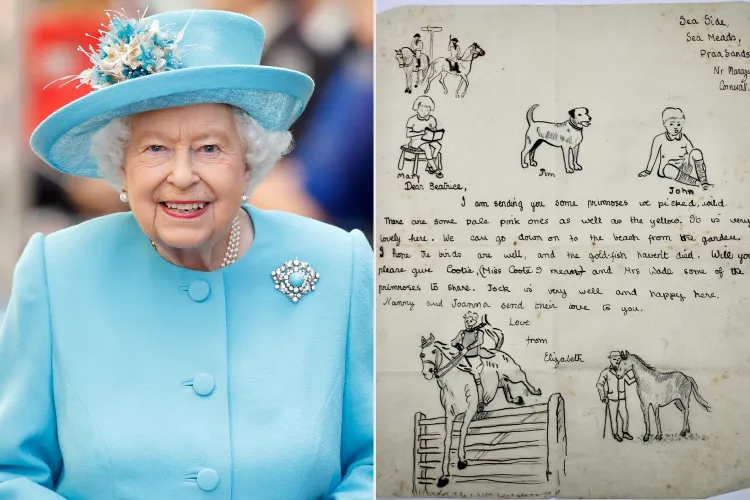 Sea Side,
Sea Meads,
Praa Sands
Nr Maraz
Cornwal
Mary
Jim
John
Dear Beatrice,
I am sending you some primroses we picked, wild.
There are some pale pink ones as well as the yellow. It is very
lovely here. We can go down on to the beach from the garden
I hope the birds are well, and the gold-fish haven't died. Will you
please give Cootie, (Miss Coote I mean) and Mrs Wade some of the
primroses to share. Jock is very well and happy here.
Nanny and Joanna send their love to you.
Love
from
Elizabeth